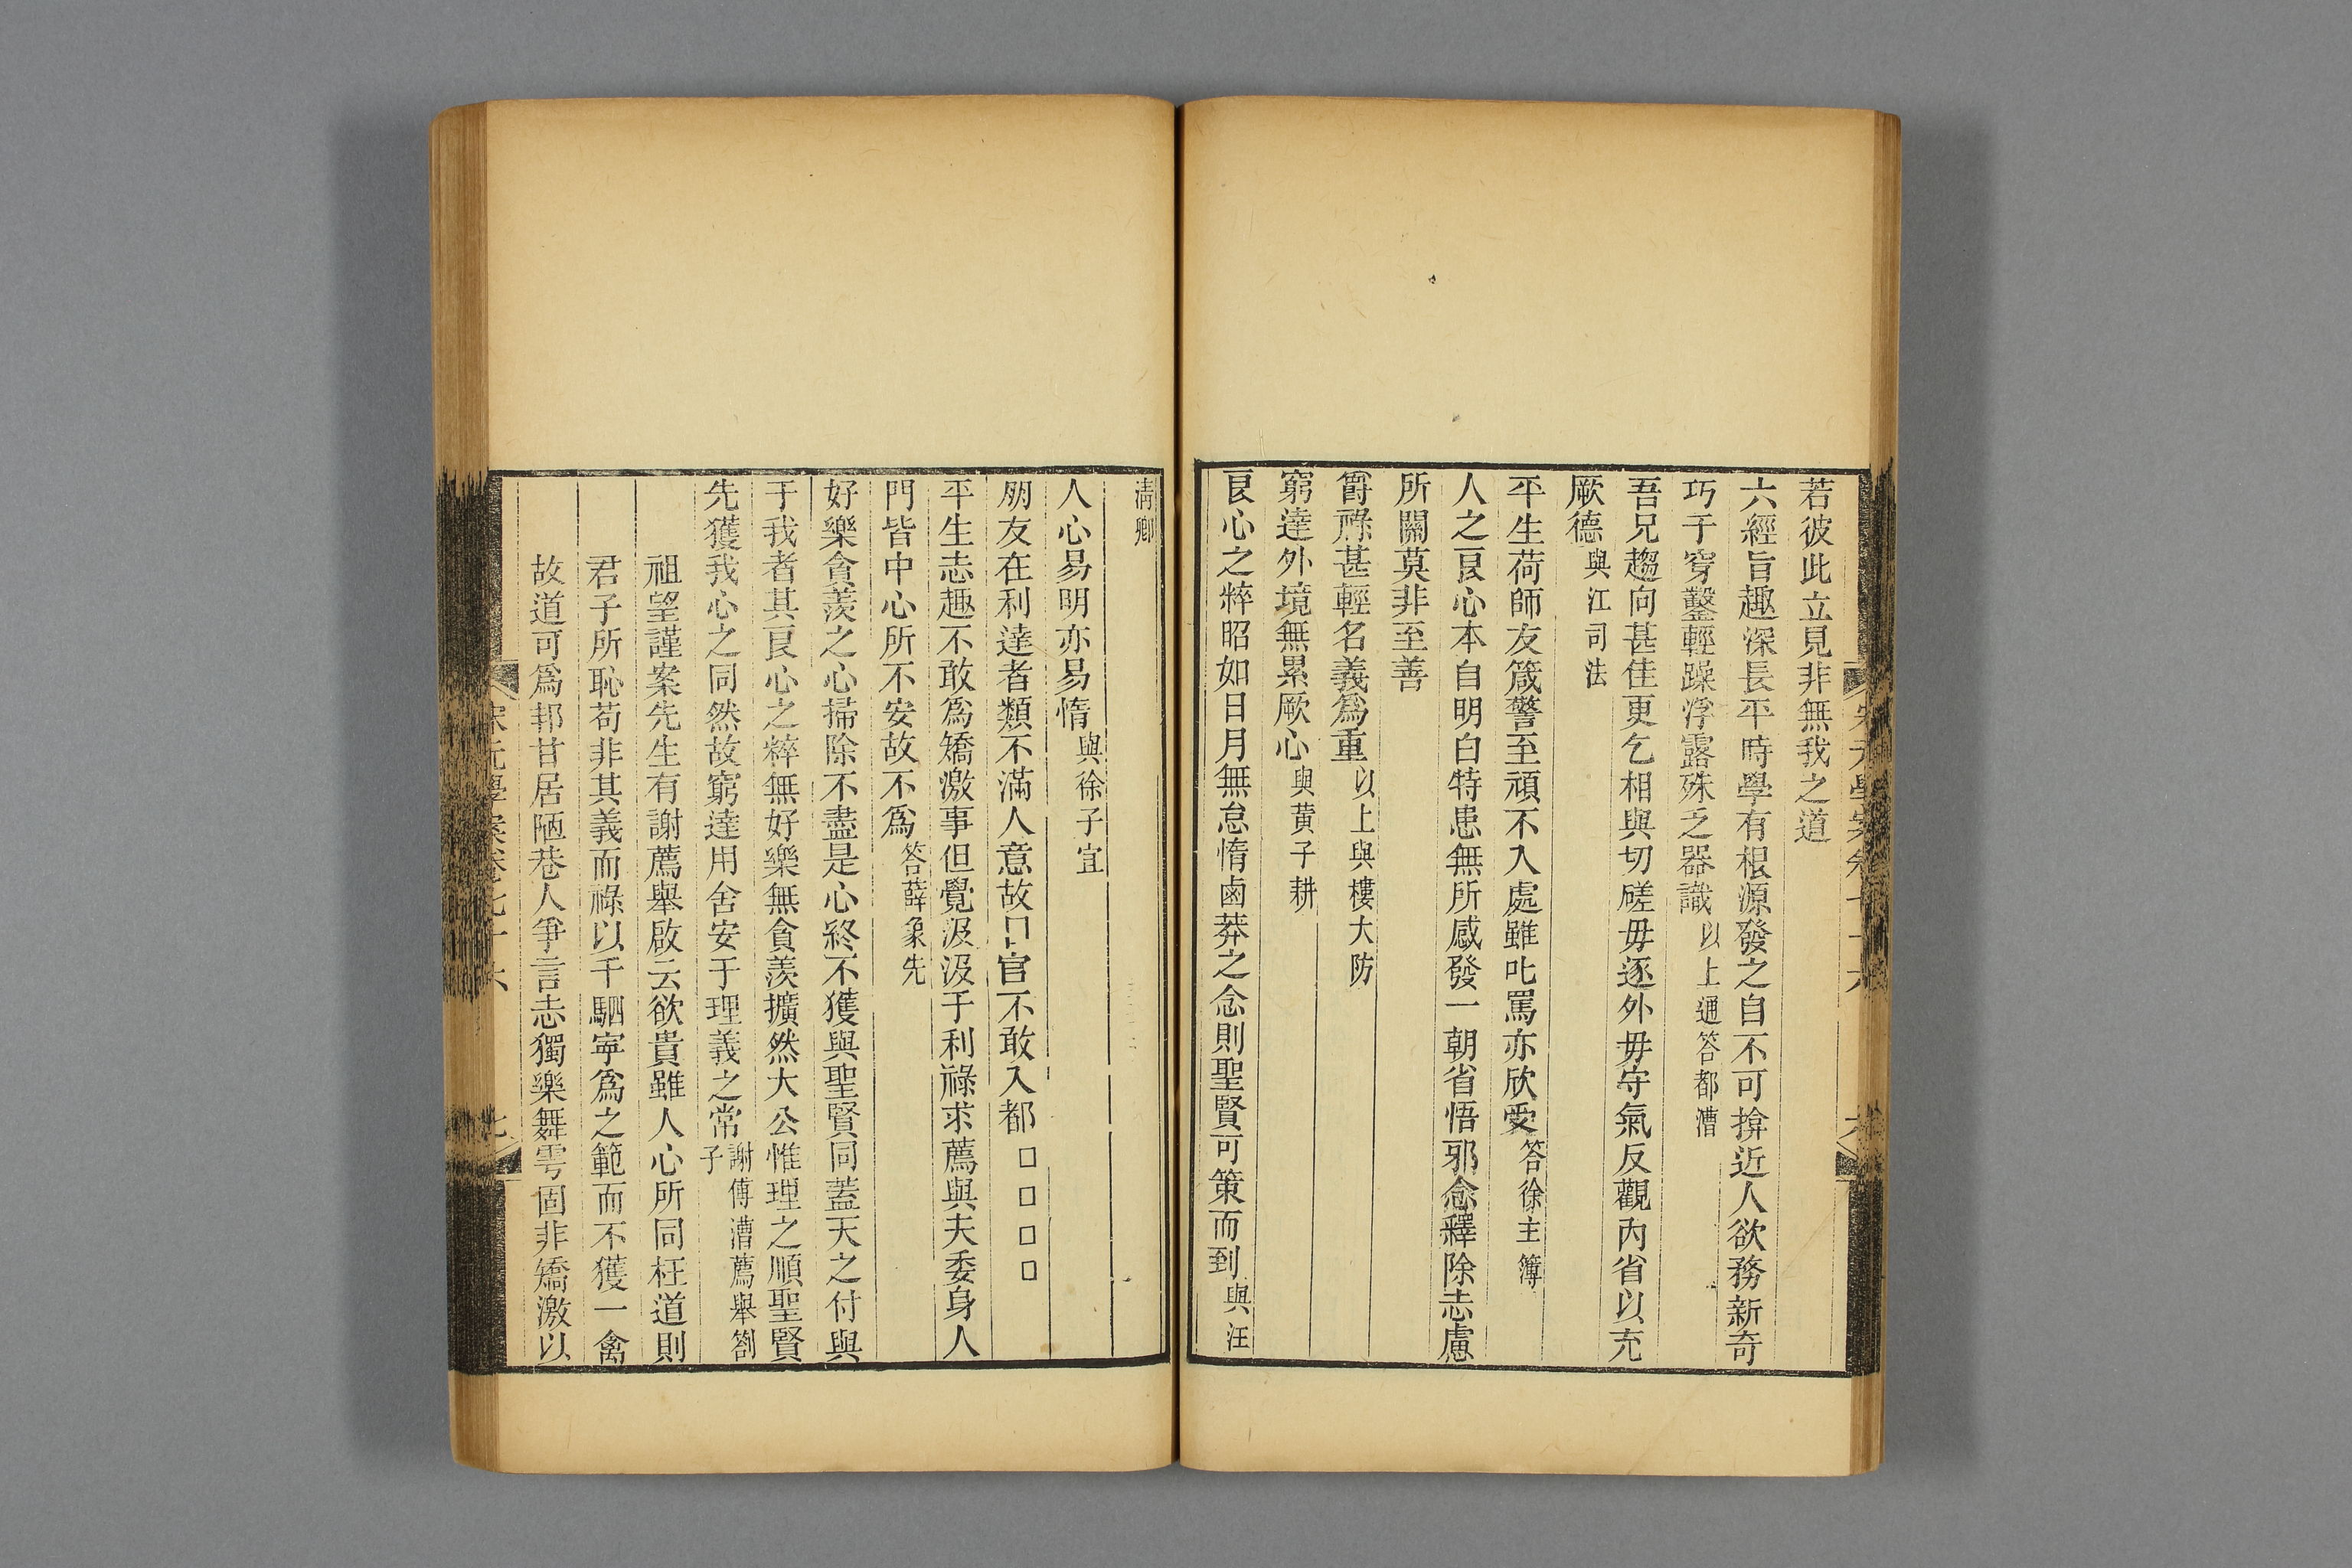 若彼此立見非無我之道
六經旨趣深長平時學有根源發之自不可揜近人欲務新奇
巧于穿鑿輕躁浮露殊乏器識以上通答都漕
吾兄趨向甚佳更乞相與切磋毋逐外毋守氣反觀內省以充
厥德與江司法
平生荷師友箴警至頑不入處雖叱罵亦欣愛答徐主簿
人之良心本自明白特患無所感發一朝省悟邪念釋除志慮
所關莫非至善
爵祿甚輕名義爲重以上與樓大防
窮達外境無累厥心與黃子耕
良心之粹昭如日月無怠惰鹵莽之念則聖賢可策而到與汪
清卿
人心易明亦易惰與徐子宜
朋友在利達者類不滿人意故□官不敢入都□□□□
平生志趣不敢爲矯激事但覺汲汲于利祿求薦與夫委身人
門皆中心所不安故不爲答薛象先
好樂貪羨之心掃除不盡是心終不獲與聖賢同蓋天之付與
于我者其良心之粹無好樂無貪羨擴然大公惟理之順聖賢
先獲我心之同然故窮達用舍安于理義之常謝傅漕薦舉劄子
祖望謹案先生有謝薦舉啟云欲貴雖人心所同枉道則
君子所恥苟非其義而祿以千駟寧爲之範而不獲一禽
故道可爲邦甘居陋巷人爭言志獨樂舞雩固非矯激以
宋元學案卷七十六
七